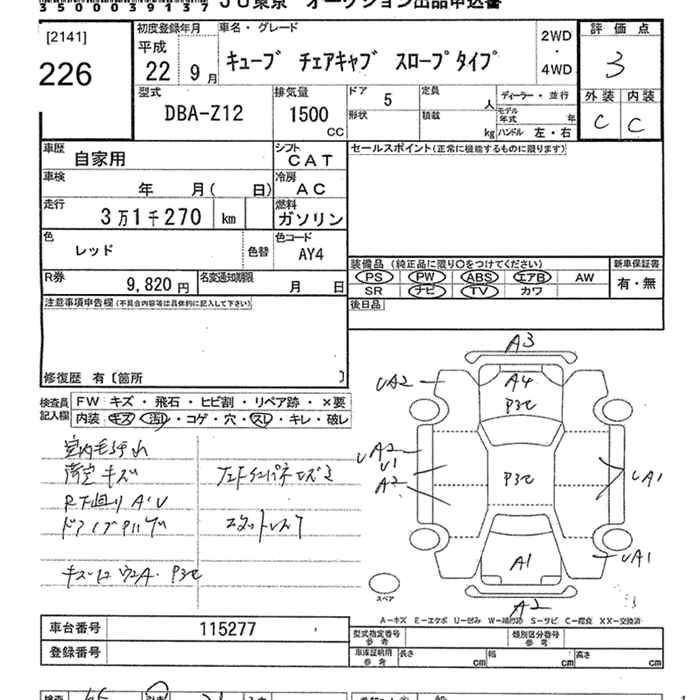 35000391​37 JU東京 オークション出品申込書
[2141]
226
初度登録年月
平成
22年9月
車名・グレード
キューブ チェアキャブ スロープタイプ
2WD
・
4WD
評価点
3
外装 内装
C C
型式
DBA-Z12
排気量
1500
CC
ドア 5
形状
定員
人
積載
kg
ディーラー・並行
モデル年式 年
ハンドル 左・右
車歴
自家用
シフト
CAT
セールスポイント(正常に機能するものに限ります)
車検
年 月( 日)
冷房
AC
走行
3万1千270 km
燃料
ガソリン
色
レッド
色替
色コード
AY4
装備品 (純正品に限り○をつけてください)
新車保証書
有・無
PS PW ABS エアB AW
SR ナビ TV カワ
R券
9,820円
名変通知期限
月 日
後日品
注意事項申告欄(不具合内容等は具体的に記入して下さい)
修復歴 有〔箇所 〕
検査員記入欄
FW キズ・飛石・ヒビ割・リペア跡・×要
内装 キズ・汚レ・コゲ・穴・スレ・キレ・破レ
A3
A4
P3セ
UA2
UA2
U1
A2
P3セ
UA1
UA1
A1
A2
室内毛汚れ
荷室キズ
R下廻り A'U
スペア
A-キズ E-エクボ U-凹み W-補修跡 S-サビ C-腐食 XX-交換済
車台番号 115277
登録番号
型式指定番号
参考
類別区分番号
参考
車庫証明用
参考
長さ cm
幅 cm
高さ cm